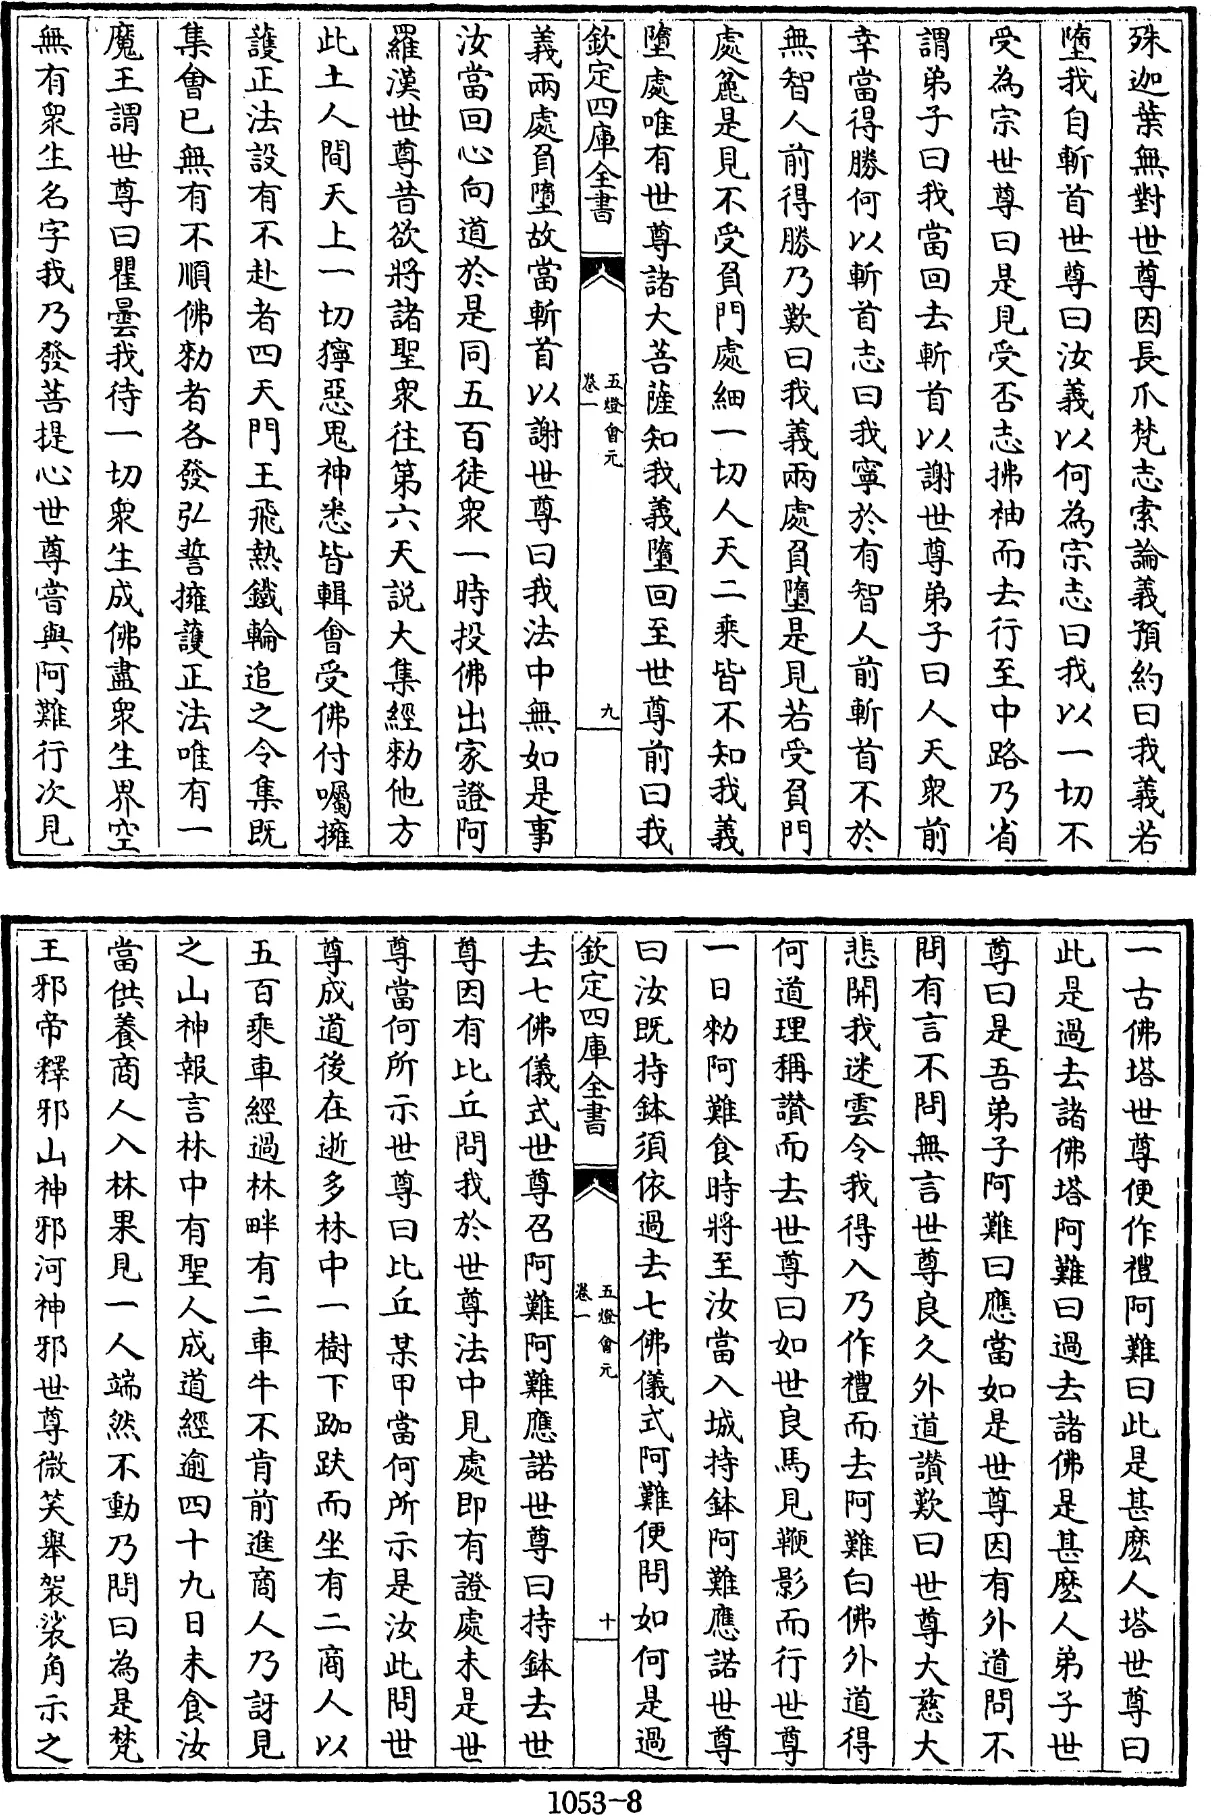 殊迦葉無對世尊因長爪梵志索論義預約曰我義若
墮我自斬首世尊曰汝義以何為宗志曰我以一切不
受為宗世尊曰是見受否志拂袖而去行至中路乃省
謂弟子曰我當回去斬首以謝世尊弟子曰人天衆前
幸當得勝何以斬首志曰我寧於有智人前斬首不於
無智人前得勝乃歎曰我義兩處負墮是見若受負門
處麄是見不受負門處細一切人天二乘皆不知我義
墮處唯有世尊諸大菩薩知我義墮回至世尊前曰我
欽定四庫全書
五燈會元
卷一
九
義兩處負墮故當斬首以謝世尊曰我法中無如是事
汝當回心向道於是同五百徒衆一時投佛出家證阿
羅漢世尊昔欲將諸聖衆往第六天說大集經勑他方
此土人間天上一切獰惡鬼神悉皆輯會受佛付囑擁
護正法設有不赴者四天門王飛熱鐵輪追之令集既
集會已無有不順佛勑者各發弘誓擁護正法唯有一
魔王謂世尊曰瞿曇我待一切衆生成佛盡衆生界空
無有衆生名字我乃發菩提心世尊嘗與阿難行次見
一古佛塔世尊便作禮阿難曰此是甚麽人塔世尊曰
此是過去諸佛塔阿難曰過去諸佛是甚麽人弟子世
尊曰是吾弟子阿難曰應當如是世尊因有外道問不
問有言不問無言世尊良久外道讚歎曰世尊大慈大
悲開我迷雲令我得入乃作禮而去阿難白佛外道得
何道理稱讚而去世尊曰如世良馬見鞭影而行世尊
一日勑阿難食時將至汝當入城持鉢阿難應諾世尊
曰汝既持鉢須依過去七佛儀式阿難便問如何是過
欽定四庫全書
五燈會元
卷一
十
去七佛儀式世尊召阿難阿難應諾世尊曰持鉢去世
尊因有比丘問我於世尊法中見處即有證處未是世
尊當何所示世尊曰比丘某甲當何所示是汝此問世
尊成道後在逝多林中一樹下跏趺而坐有二商人以
五百乘車經過林畔有二車牛不肯前進商人乃訝見
之山神報言林中有聖人成道經逾四十九日未食汝
當供養商人入林果見一人端然不動乃問曰為是梵
王邪帝釋邪山神邪河神邪世尊微笑舉袈裟角示之
1053-8